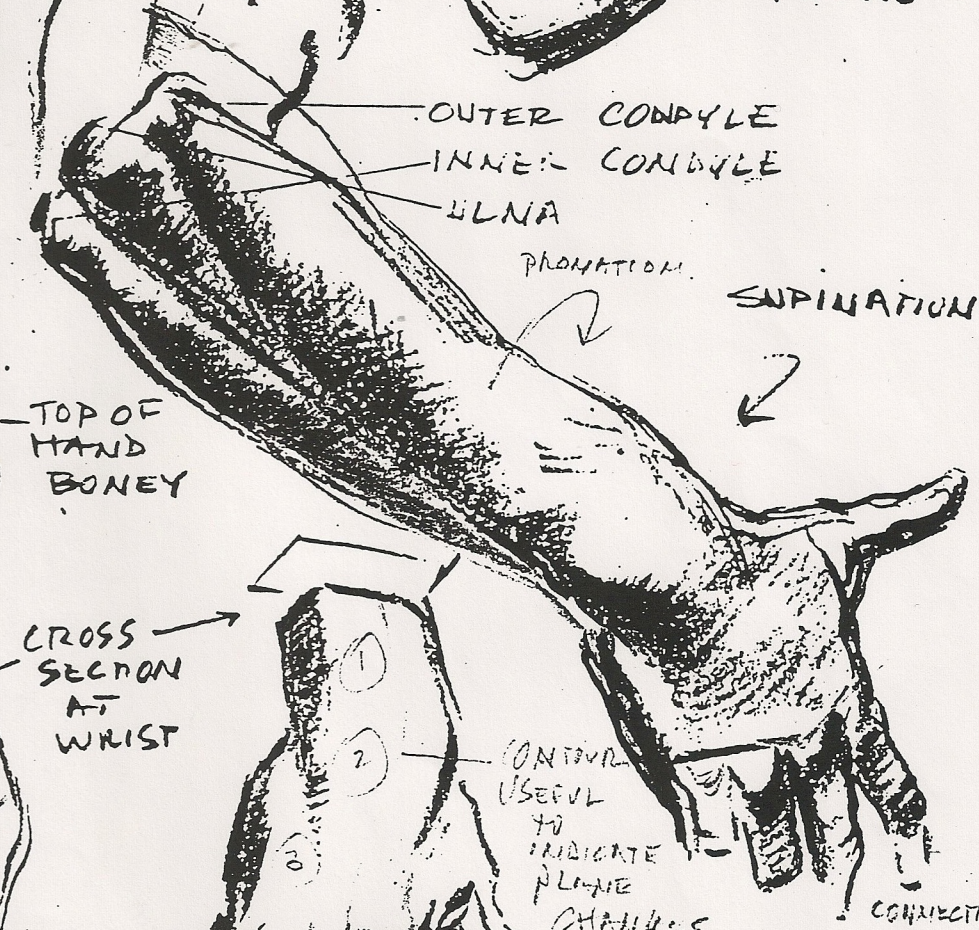 OUTER CONDYLE
INNER CONDYLE
ULNA
PRONATION
SUPINATION
TOP OF
HAND
BONEY
CROSS
SECTION
AT
WRIST
1
2
3
CONTOUR
USEFUL
TO
INDICATE
PLANE
CHANGES
CONNECTI